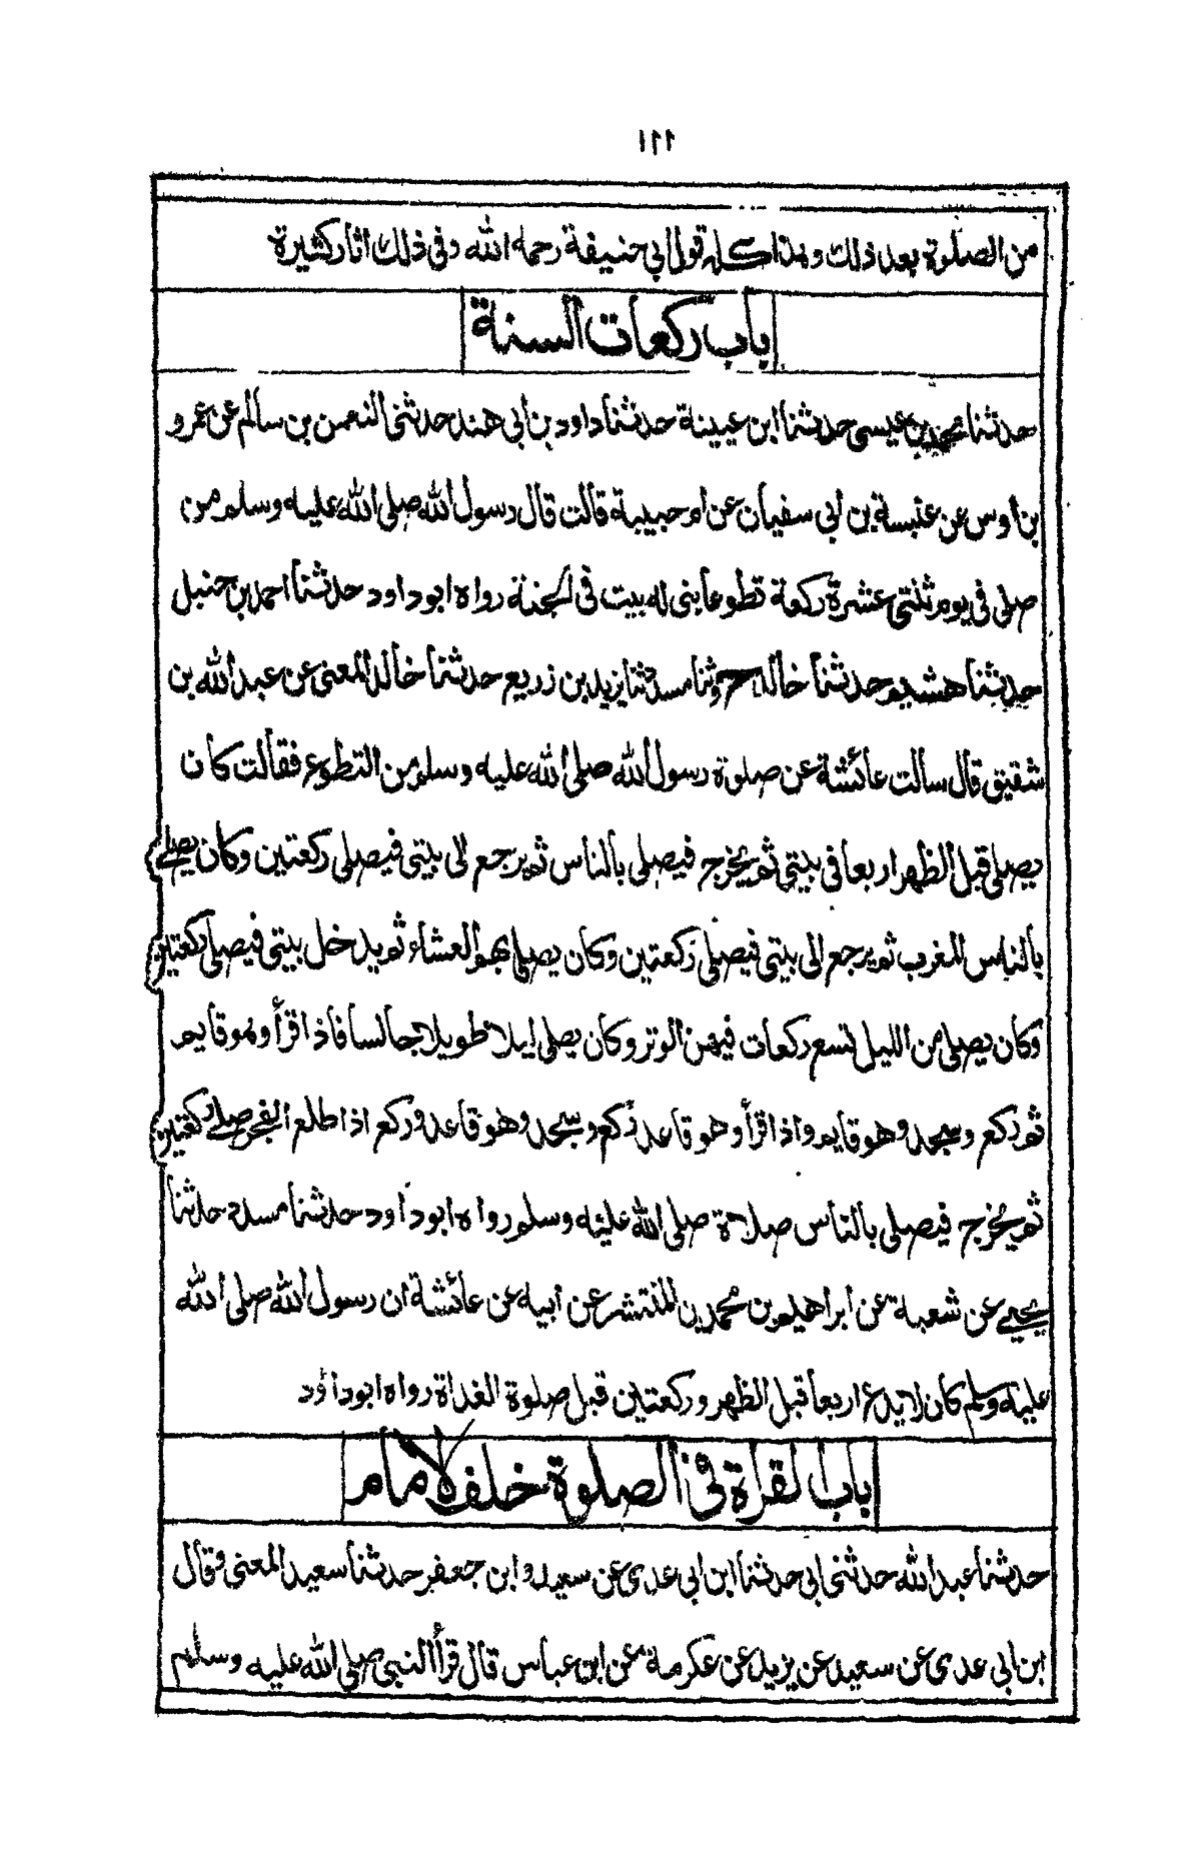 ١٢٢
من الصلوة بعد ذلك وبهذا كله قول ابي حنيفة رحمه الله وفي ذلك اثار كثيرة
باب ركعات السنة
حدثنا محمد بن عيسى حدثنا ابن عيينة حدثنا داود بن أبي هند حدثني النعمن بن سالم عن عمرو
بن اوس عن عنبسة بن ابي سفيان عن ام حبيبة قالت قال رسول الله صلى الله عليه وسلم من
صلى في يوم ثنتي عشرة ركعة تطوعا بنى له بيت في الجنة رواه ابو داود حدثنا احمد بن حنبل
حدثنا هشيم حدثنا خالد ح وثنا مسدد ثنا يزيد بن زريع حدثنا خالد المعنى عن عبد الله بن
شقيق قال سالت عائشة عن صلوة رسول الله صلى الله عليه وسلم من التطوع فقالت كان
يصلى قبل الظهر اربعا في بيتي ثم يخرج فيصلى بالناس ثم يرجع الى بيتي فيصلى ركعتين وكان يصلى
بالناس المغرب ثم يرجع الى بيتي فيصلى ركعتين وكان يصلى بهم العشاء ثم يدخل بيتي فيصلى ركعتين
وكان يصلى من الليل تسع ركعات فيهن الوتر وكان يصلى ليلا طويلا جالسا فاذا قرأ وهو قايم
ثم ركع وسجد وهو قايم واذا قرأ وهو قاعد ركع وسجد وهو قاعد وركع اذا طلع الفجر صلى ركعتين
ثم يخرج فيصلى بالناس صلاة صلى الله عليه وسلم رواه ابو داود حدثنا مسدد حدثنا
يحيى عن شعبة عن ابراهيم بن محمد بن المنتشر عن ابيه عن عائشة ان رسول الله صلى الله
عليه وسلم كان لا يدع اربعا قبل الظهر وركعتين قبل صلوة الغداة رواه ابو داؤد
باب القرأة في الصلوة خلف الامام
حدثنا عبد الله حدثني ابي حدثنا ابن ابي عدى عن سعيد وابن جعفر حدثنا سعيد المعنى وقال
ابن ابي عدى عن سعيد عن يزيد عن عكرمة عن ابن عباس قال قرأ النبي صلى الله عليه وسلم